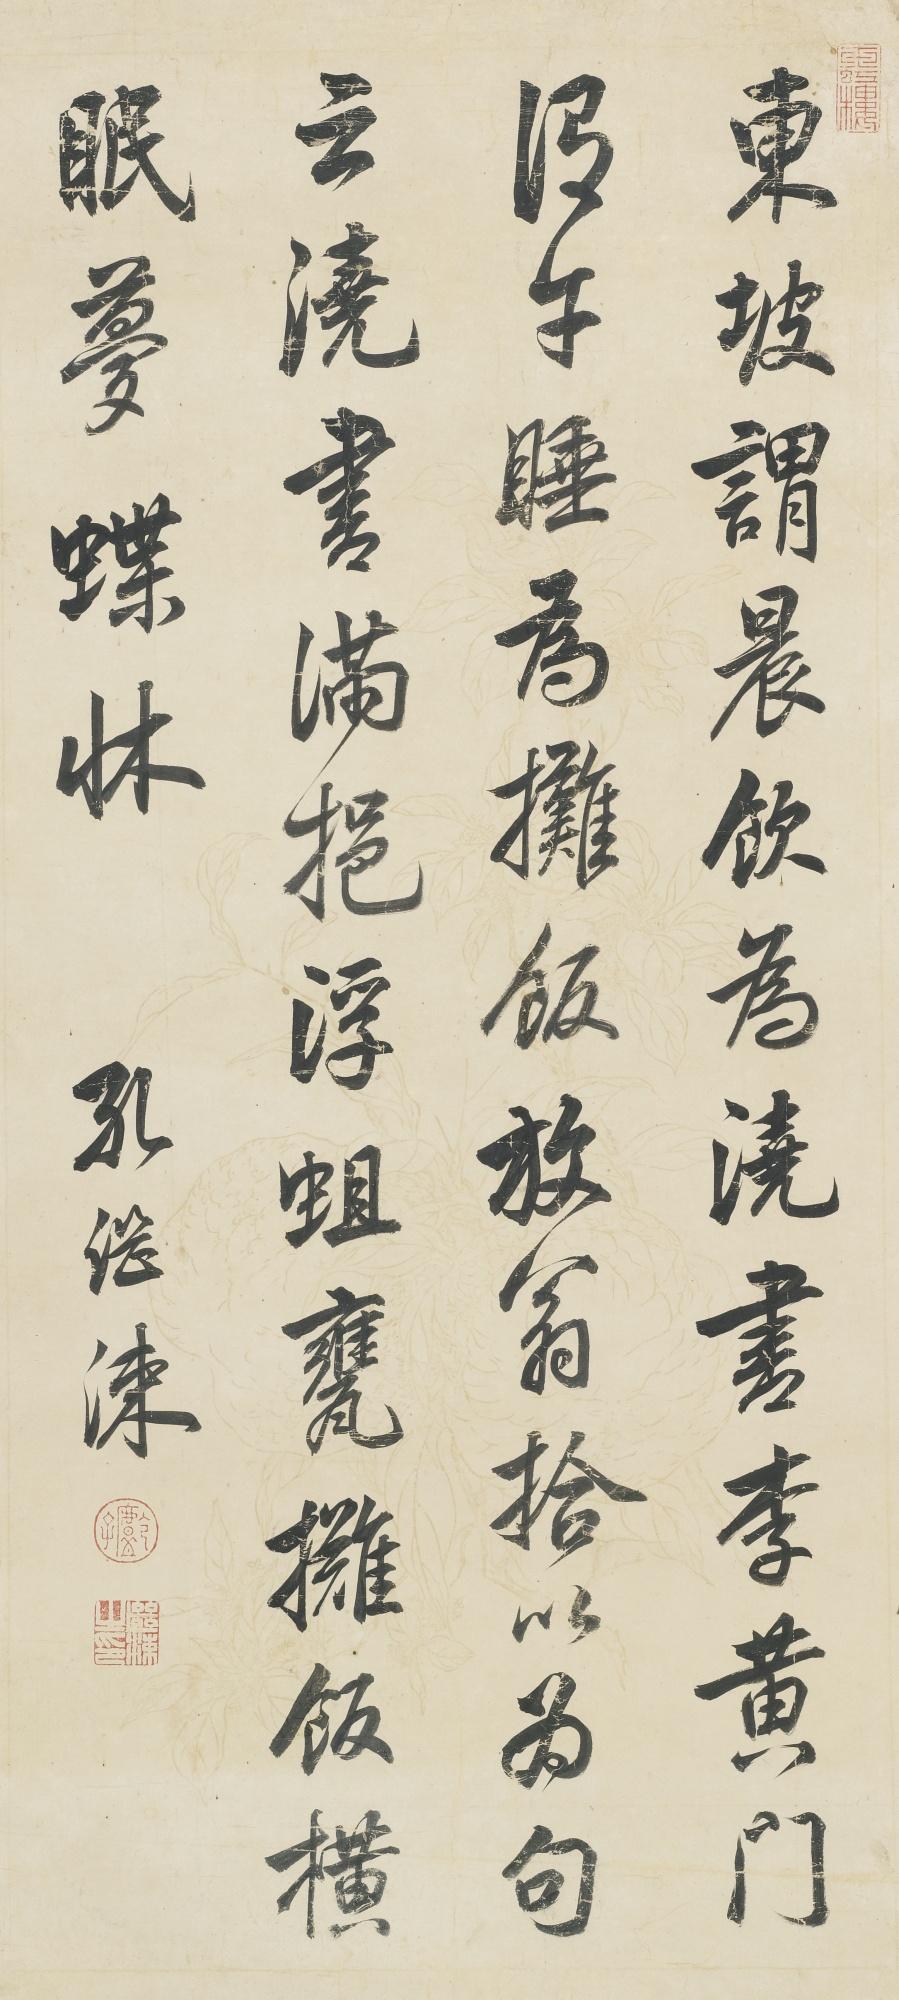 東坡謂晨飲為澆書李黄門
謂午睡為攤飯放翁拾以為句
云澆書滿挹浮蛆甕攤飯橫
眠夢蝶牀
孔繼涑